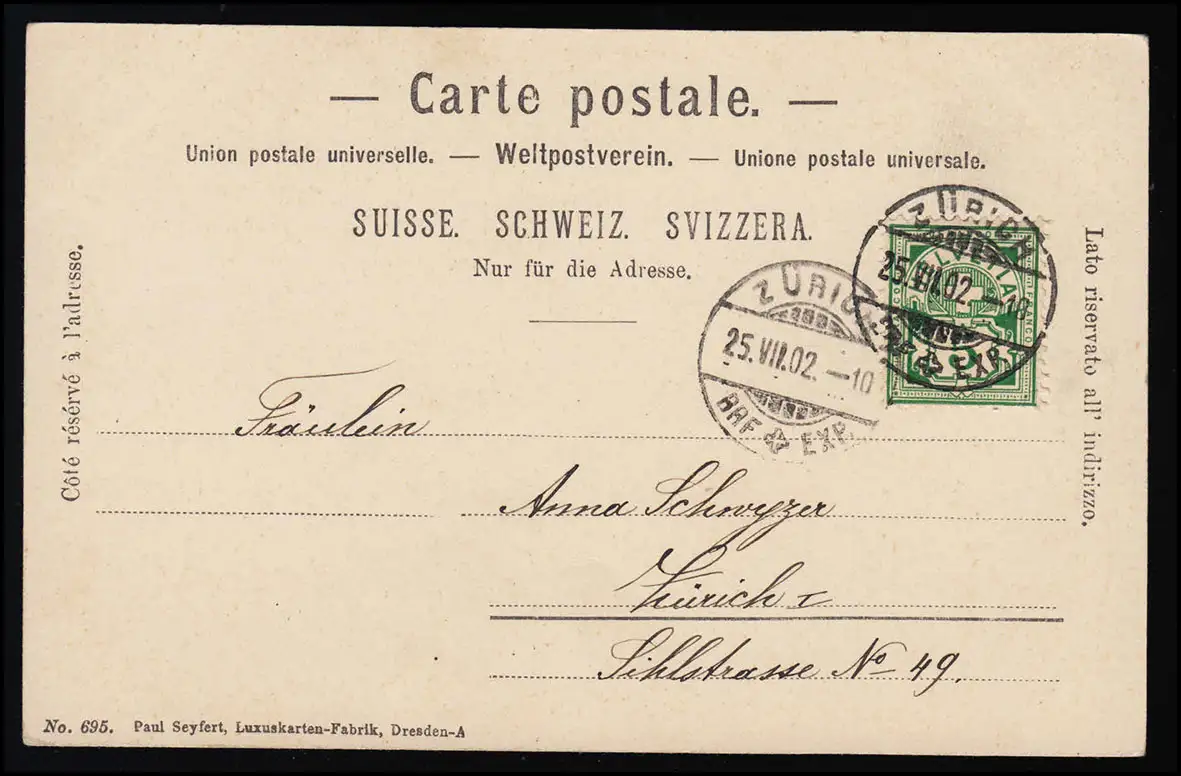 — Carte postale. —
Union postale universelle. — Weltpostverein. — Unione postale universale.
SUISSE. SCHWEIZ. SVIZZERA.
Nur für die Adresse.
Côté résérvé à l'adresse.
Lato riservato all' indirizzo.
ZÜRICH
25.VII.02.–10
EXP.
ZÜRICH
25.VII.02.–10
BRF EXP.
Fräulein
Anna Schwyzer
Zürich I
Sihlstrasse No 49.
No. 695. Paul Seyfert, Luxuskarten-Fabrik, Dresden-A